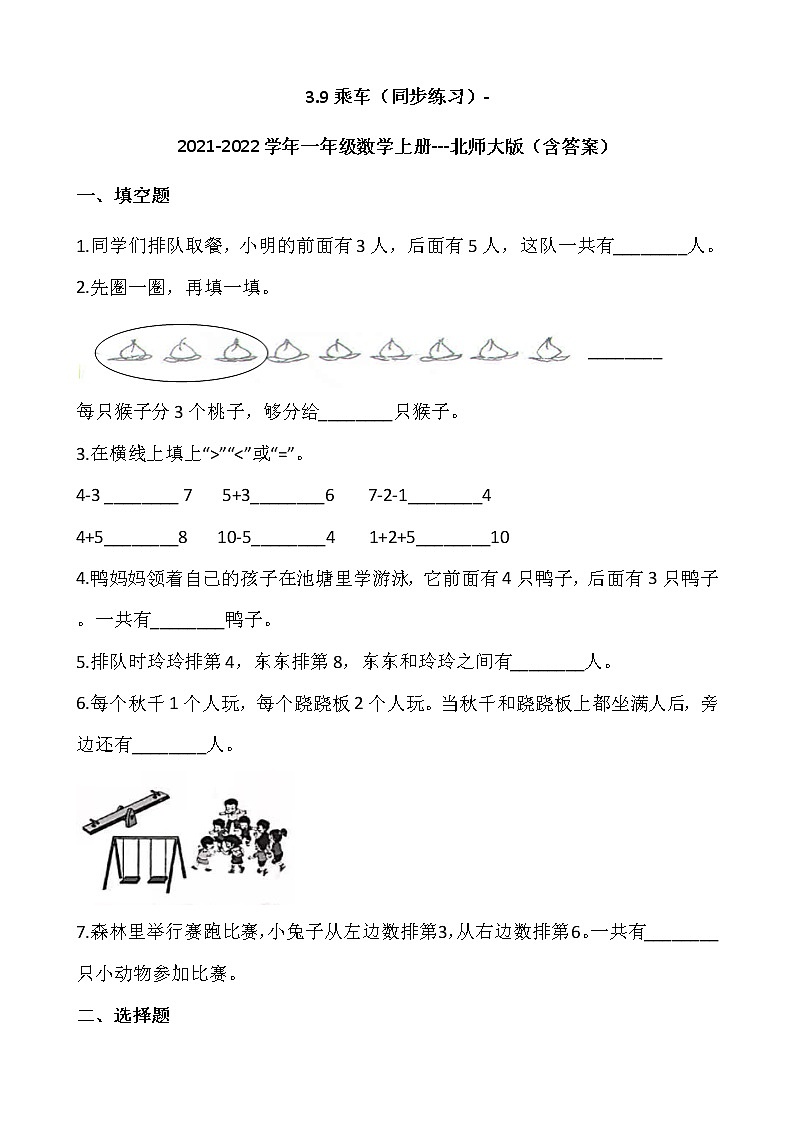 3.9 乘车（同步练习）-
2021-2022 学年一年级数学上册---北师大版（含答案）
一、填空题
1.同学们排队取餐，小明的前面有 3 人，后面有 5 人，这队一共有________人。
2.先圈一圈，再填一填。
________
每只猴子分 3 个桃子，够分给________只猴子。
3.在横线上填上“>”“<”或“=”。
4-3 ________ 7 5+3________6 7-2-1________4
4+5________8 10-5________4 1+2+5________10
4.鸭妈妈领着自己的孩子在池塘里学游泳，它前面有 4 只鸭子，后面有 3 只鸭子
。一共有________鸭子。
5.排队时玲玲排第 4，东东排第 8，东东和玲玲之间有________人。
6.每个秋千 1 个人玩，每个跷跷板 2 个人玩。当秋千和跷跷板上都坐满人后，旁
边还有________人。
7.森林里举行赛跑比赛，小兔子从左边数排第3，从右边数排第6。一共有________
只小动物参加比赛。
二、选择题